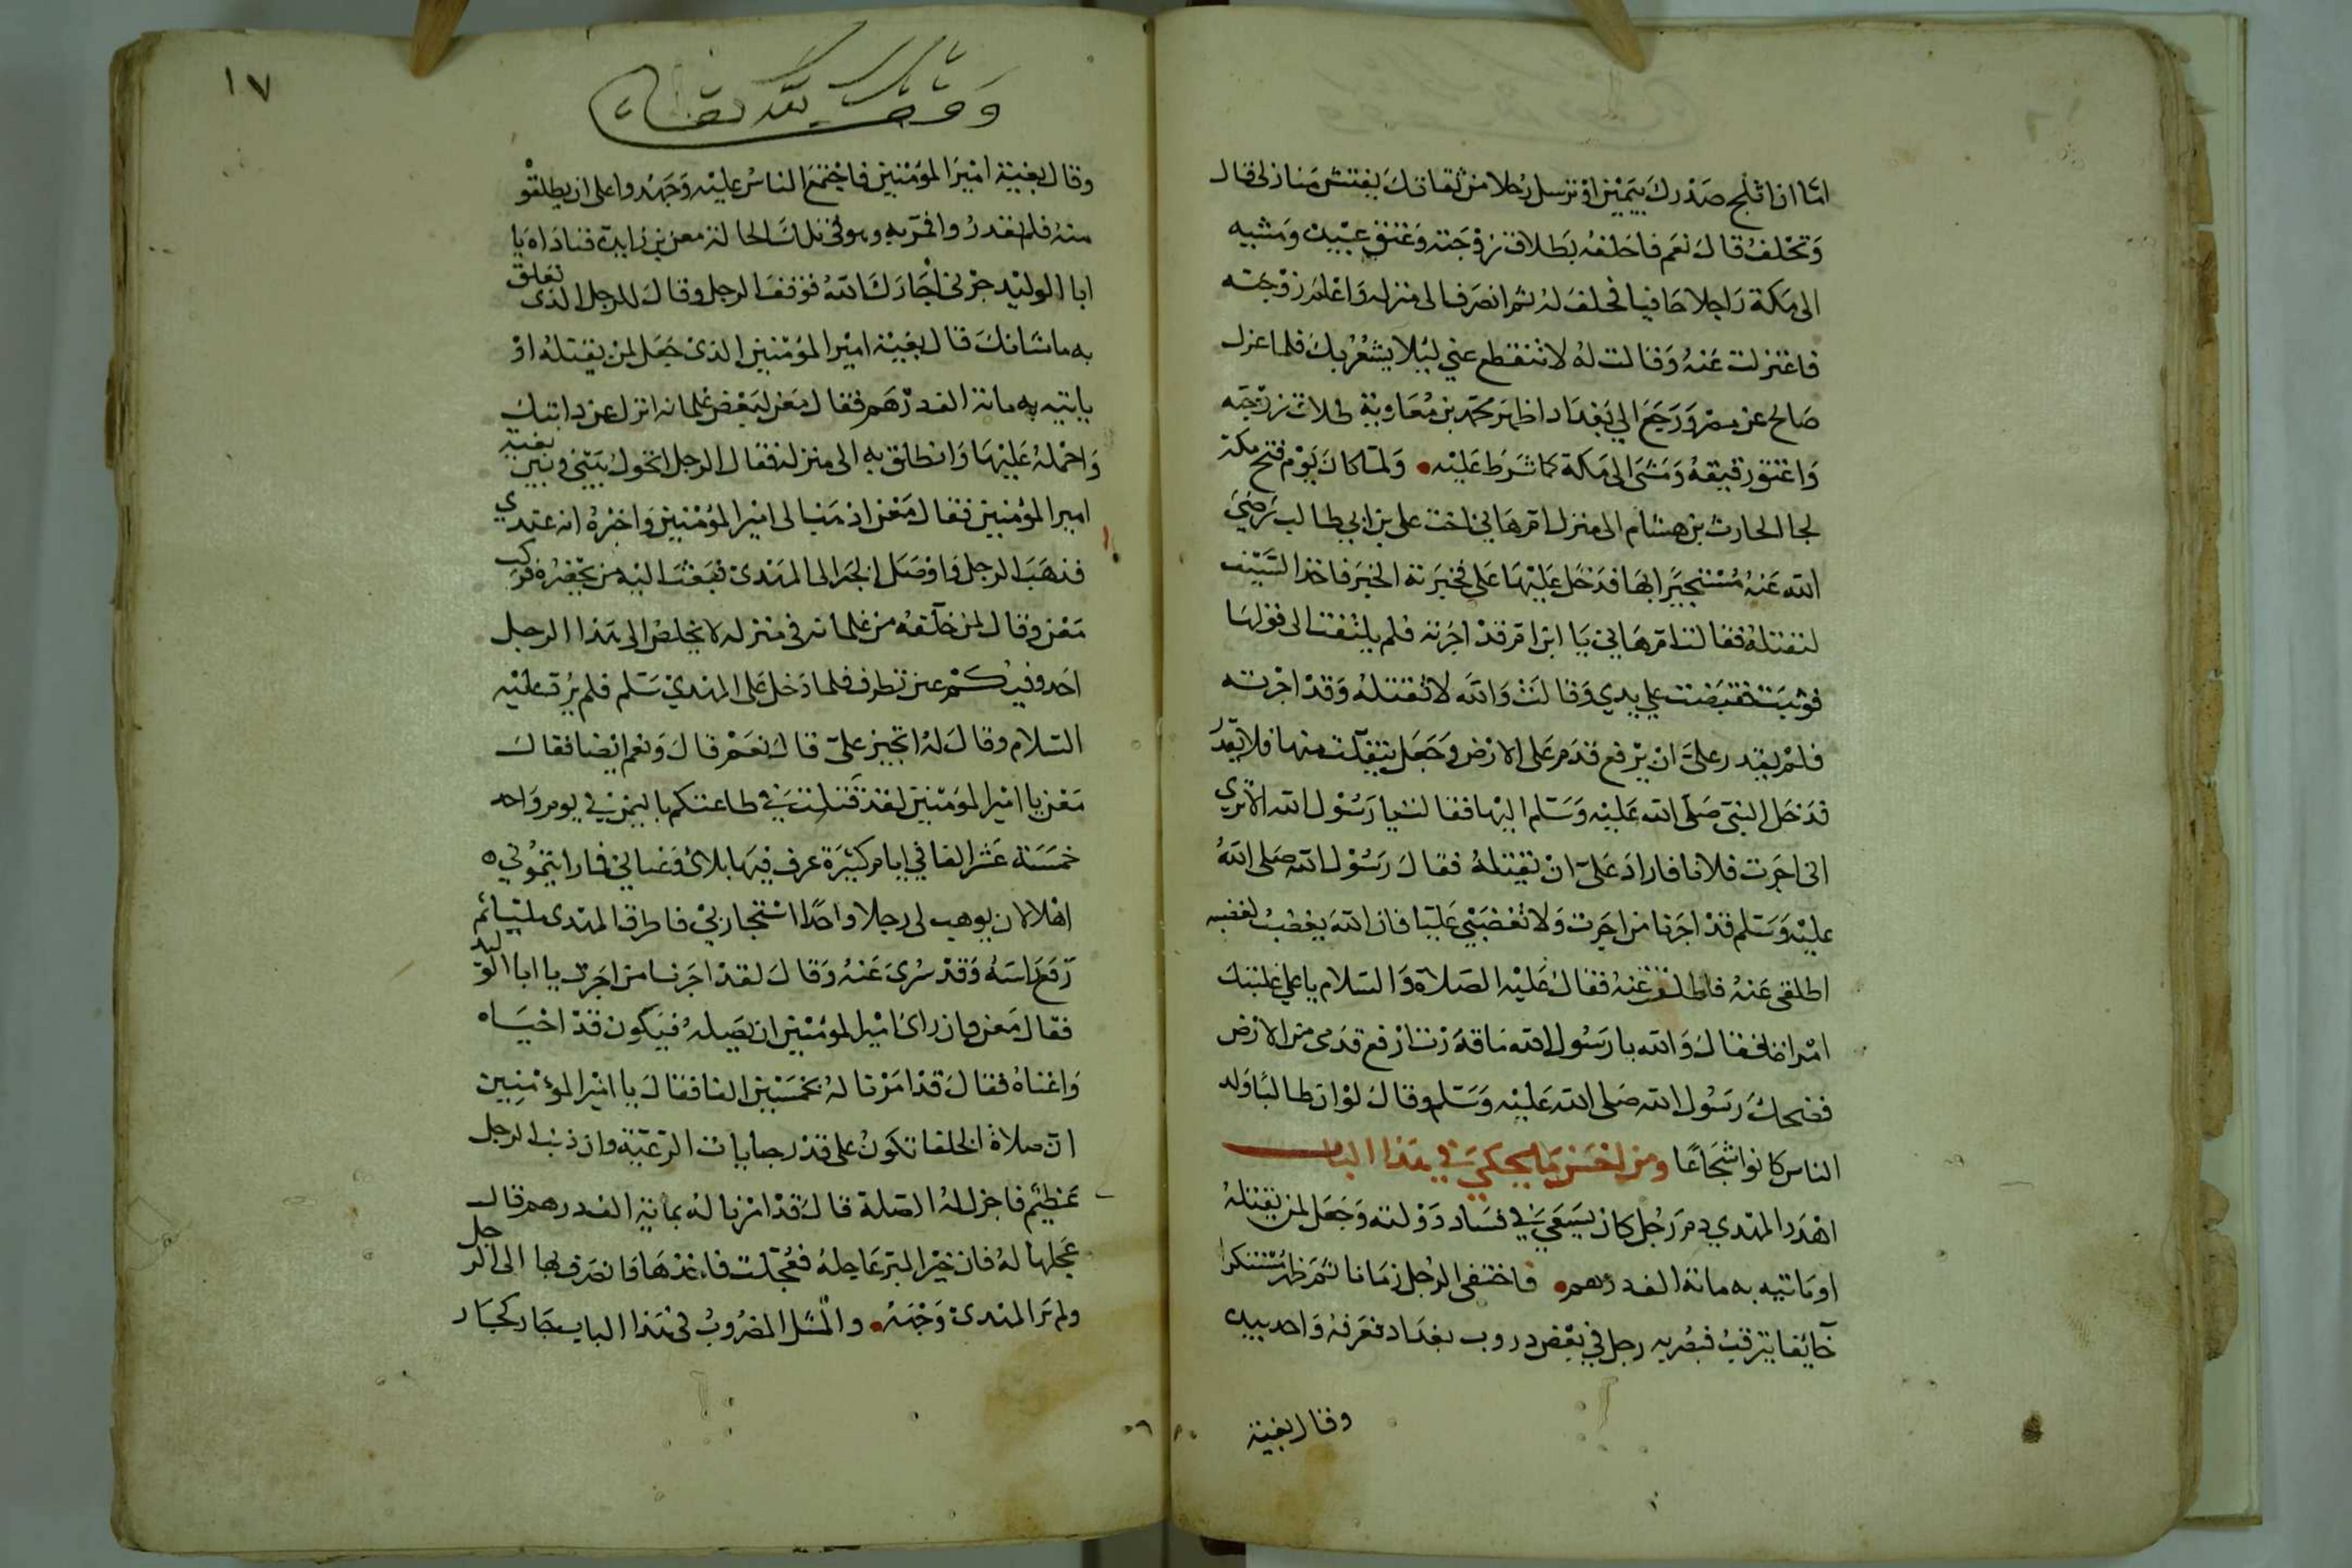 اما ان اثلج صدرك بيمين او ترسل رجلا من ثقاتك يفتش منازلى قال
وتحلف قال نعم فاحلفه بطلاق زوجته وعتق عبيده ومشيه
الى مكة راجلا حافيا فحلف له ثم انصرف الى منزله واعلم زوجته
فاعتزلت عنه وقالت له لا تنقطع عني ليلا يشعر بك فلما عزل
صالح عن مصر ورجع الي بغداد اظهر محمد بن معاوية طلاق زوجته
واعتق رقيقه ومشى الى مكة كما شرط عليه ولما كان يوم فتح مكة
لجا الحارث بن هشام الى منزل ام هاني اخت على بن ابي طالب رضى
الله عنه مستجيرا بها فدخل عليها على فخبرته الخبر فاخذ السيف
ليقتله فقالت ام هاني يا ابن ام قد اجرته فلم يلتفت الى قولها
فوثبت فقبضت علي يديه وقالت والله لا تقتله وقد اجرته
فلم يقدر على ان يرفع قدم على الارض وجعل يتفلت منها فلا يقدر
فدخل النبى صلى الله عليه وسلم اليها فقالت يا رسول الله الا ترى
انى اجرت فلانا فاراد على ان يقتله فقال رسول الله صلى الله
عليه وسلم قد اجرنا من اجرت ولا تغضبي عليا فان الله يغضب لغضبه
اطلقى عنه فاطلقت عنه فقال عليه الصلاة والسلام يا على غلبتك
امراة فقال والله يا رسول الله ما قدرت ارفع قدمى من الارض
فضحك رسول الله صلى الله عليه وسلم وقال لو ان ابا طالب ولد
الناس كانوا شجاعا ومن احسن ما يحكي في هذا الباب
اهدر المهدي دم رجل كان يسعى في فساد دولته وجعل لمن يقتله
او ياتيه به مائة الف درهم فاختفى الرجل زمانا ثم ظهر متنكرا
خائفا يترقب فبصر به رجل في بعض دروب بغداد فعرفه واخذ بيده
وقال بغية
١٧
وقف لله تعالى
وقال بغية امير المؤمنين فاجتمع الناس عليه وجهدوا على ان يطلقو
منه فلم يقدروا فمر به وهو فى تلك الحالة معن بن زايدة فناداه يا
ابا الوليد جرنى اجارك الله فوقف الرجل وقال للرجل الذى تعلق
به ما شانك قال بغية امير المؤمنين الذى جعل لمن يقتله او
ياتيه به مائة الف درهم فقال معن لبعض غلمانه انزل عن دابتك
واحمله عليها وانطلق به الى منزله فقال الرجل اتحول بينى وبين بغية
امير المؤمنين فقال معن اذهب الى امير المؤمنين واخبره انه عندي
فذهب الرجل فاوصل الخبر الى المهدى فبعث اليه من يحضره فركب
معن وقال لمن خلفه من غلمانه فى منزله لا يخلص الى هذا الرجل
احد وفيكم عين تطرف فلما دخل على المهدي سلم فلم يرد عليه
السلام وقال له اتجير علىّ قال نعم قال ونعم ايضا فقال
معن يا امير المؤمنين لقد قتلت في طاعتكم باليمن في يوم واحد
خمسة عشر الفا في ايام كثيرة عرف فيها بلائى وغنائي فما رايتمونى
اهلا لان يوهب لى رجلا واحدا استجار بي فاطرق المهدى مليا ثم
رفع راسه وقد سرى عنه وقال لقد اجرنا من اجرت يا ابا الوليد
فقال معن فان راى امير المؤمنين ان يصله فيكون قد احياه
واغناه فقال قد امرنا له بخمسين الفا فقال يا امير المؤمنين
ان صلاة الخلفا تكون على قدر جنايات الرعية وان ذنب الرجل
عظيم فاجزل له الصلة قال قد امرنا له بمائة الف درهم قال
عجلها له فان خير البر عاجله فعجلت فاخذها وانصرف بها الى الرجل
ولم ير المهدى وجهه والمثل المضروب فى هذا الباب جار كجار